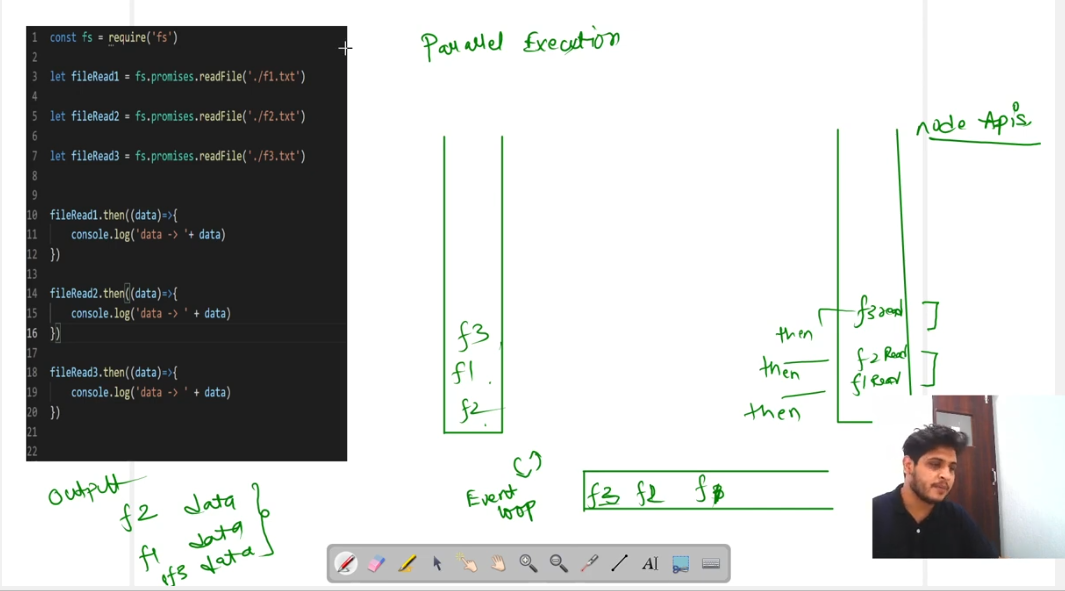 1 const fs = require('fs')
2
3 let fileRead1 = fs.promises.readFile('./f1.txt')
4
5 let fileRead2 = fs.promises.readFile('./f2.txt')
6
7 let fileRead3 = fs.promises.readFile('./f3.txt')
8
9
10 fileRead1.then((data)=>{
11 console.log('data -> '+ data)
12 })
13
14 fileRead2.then((data)=>{
15 console.log('data -> ' + data)
16 })
17
18 fileRead3.then((data)=>{
19 console.log('data -> ' + data)
20 })
21
22
Parallel Execution
node Apis
f3
f1
f2
then f3 read
then f2 Read
f1 Read
then
Event
loop
f3 f2
Output
f2 data
f1 data
f3 data
AI